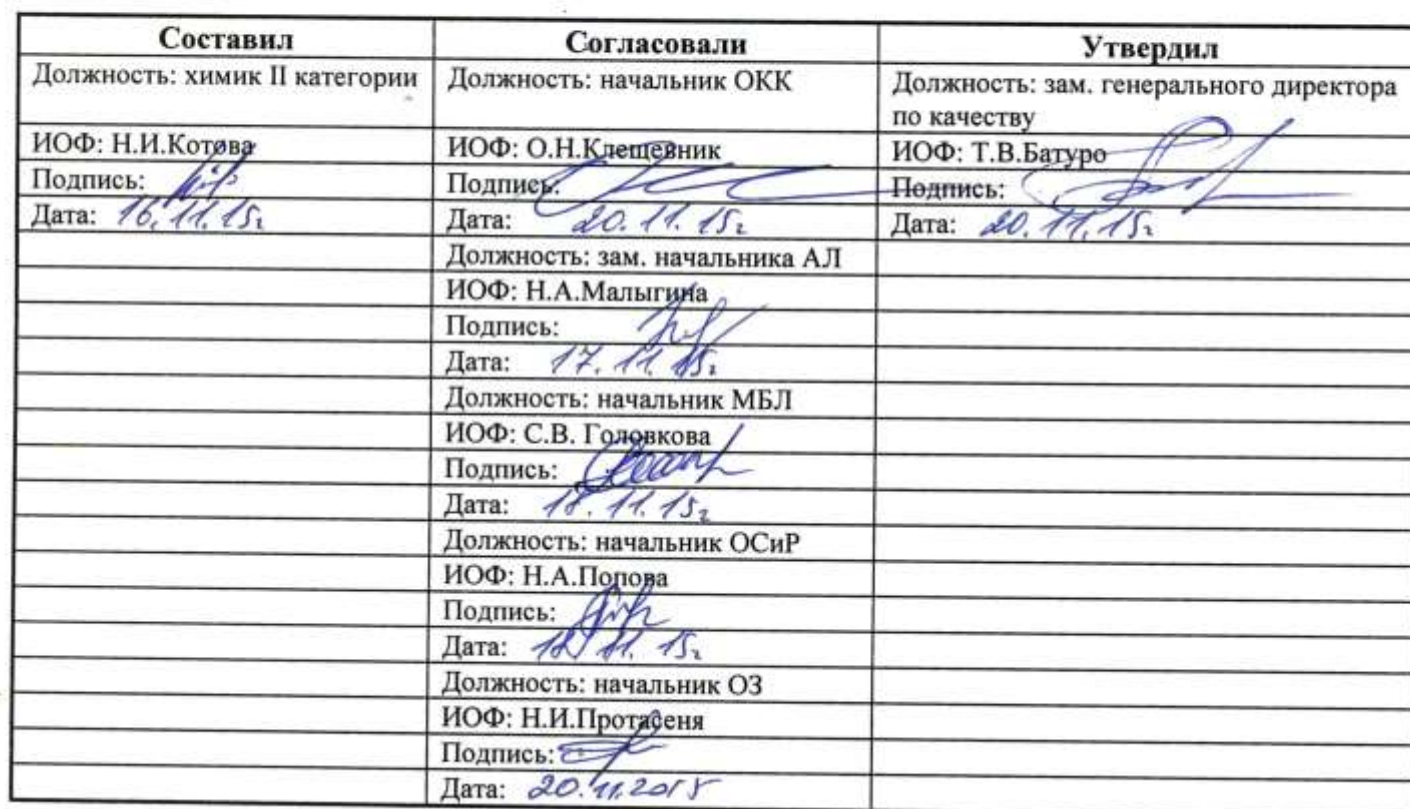 Составил Согласовали Утвердил
Должность: химик II категории Должность: начальник ОКК Должность: зам. генерального директора
по качеству
ИОФ: Н.И.Котова ИОФ: О.Н.Клещевник ИОФ: Т.В.Батуро
Подпись: Подпись: Подпись:
Дата: 16.11.15г Дата: 20.11.15г Дата: 20.11.15г
Должность: зам. начальника АЛ
ИОФ: Н.А.Малыгина
Подпись:
Дата: 17.11.15г
Должность: начальник МБЛ
ИОФ: С.В. Головкова
Подпись:
Дата: 18.11.15г
Должность: начальник ОСиР
ИОФ: Н.А.Попова
Подпись:
Дата: 18.11.15г
Должность: начальник ОЗ
ИОФ: Н.И.Протасеня
Подпись:
Дата: 20.11.2015